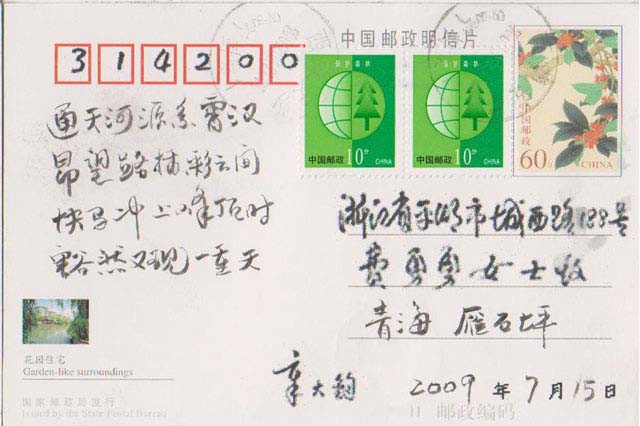 中国邮政明信片
314200
保护森林
中国邮政 10分 CHINA
保护森林
中国邮政 10分 CHINA
中国邮政
60分
CHINA
通天河源系霄汉
昂望路插彩云间
快马冲上峰顶时
豁然又现一重天
浙江省平湖市城西路188号
费勇勇女士收
青海 雁石坪
章大钧
2009年7月15日
花园住宅
Garden-like surroundings
国家邮政局发行
Issued by the State Postal Bureau
邮政编码